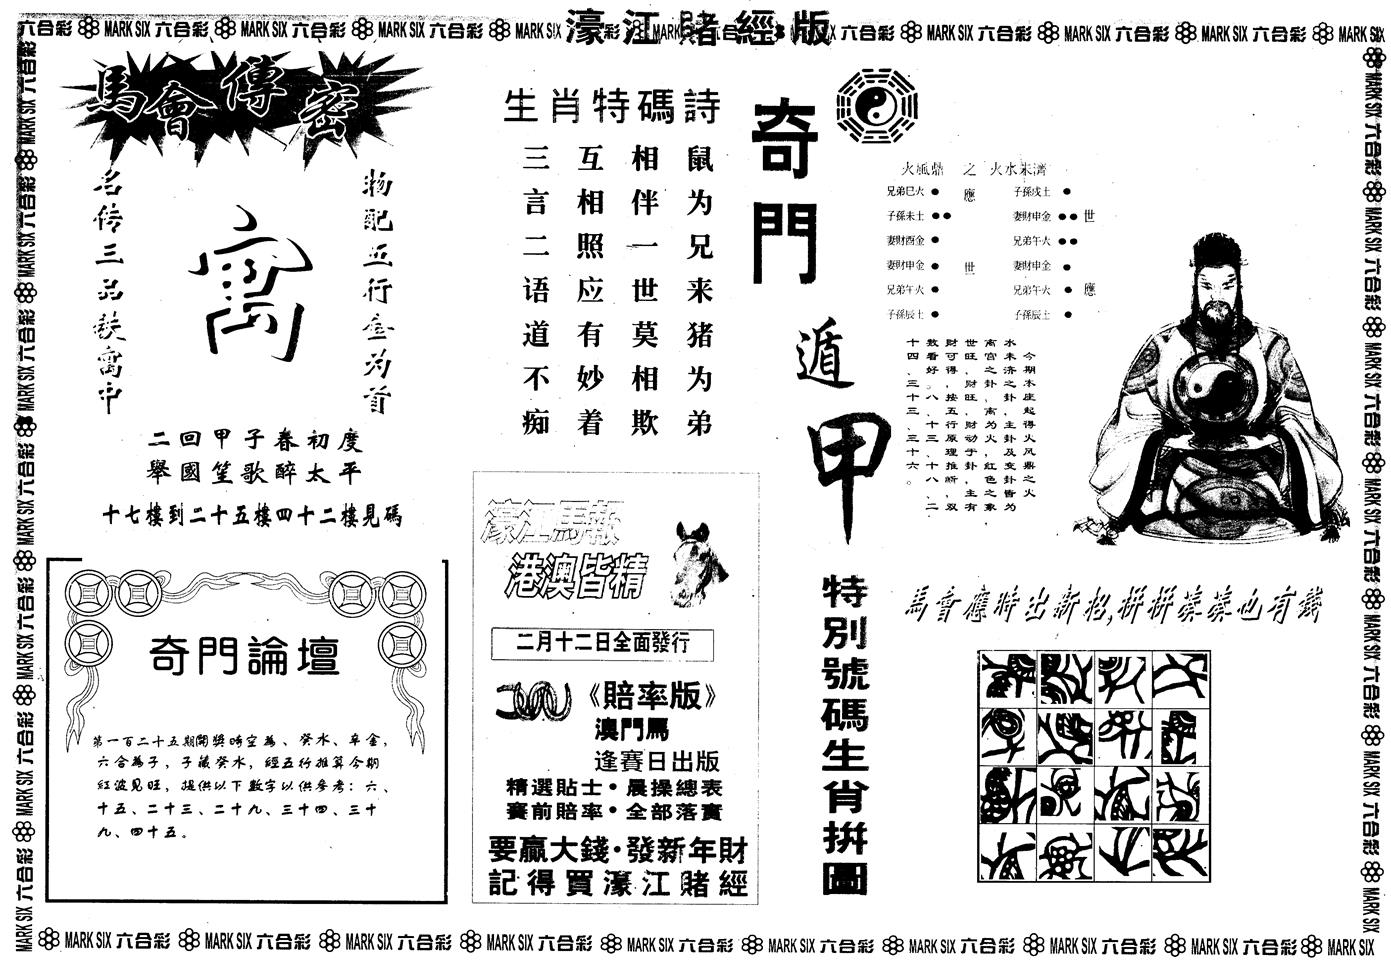 濠江賭經版
六合彩 MARK SIX 六合彩 MARK SIX 六合彩 MARK SIX 六合彩 MARK SIX
馬會傳密
物配五行金为首
名传三品铁寓中
寓
二回甲子春初度
舉國笙歌醉太平
十七樓到二十五樓四十二樓見碼
奇門論壇
第一百二十五期開獎時空為、癸水、辛金，
六合為子，子藏癸水，經五行推算今期
紅波見旺，提供以下數字以供參考：六、
十五、二十三、二十九、三十四、三十
九、四十五。
生肖特碼詩
鼠为兄来猪为弟
相伴一世莫相欺
互相照应有妙着
三言二语道不痴
濠江馬報
港澳皆精
二月十二日全面發行
《賠率版》
澳門馬
逢賽日出版
精選貼士·晨操總表
賽前賠率·全部落實
要贏大錢·發新年財
記得買濠江賭經
奇門遁甲
火風鼎 之 火水未濟
兄弟巳火 應 子孫戌土
子孫未土 妻財申金 世
妻財酉金 兄弟午火
妻財申金 世 妻財申金
兄弟午火 兄弟午火 應
子孫辰土 子孫辰土
今期本庄起得火风鼎之火
水未济之卦，主卦及变卦皆为
南宫之卦，南为火，红色之象，
世旺，财旺，财动于卦，主有
财可得，按五行原理推断，双
数看好。八、十三、十八、二
十四、三十三、三十六。
特別號碼生肖拼圖
馬會應時出新招，拼拼湊湊也有錢
MARK SIX 六合彩 MARK SIX 六合彩 MARK SIX 六合彩 MARK SIX 六合彩